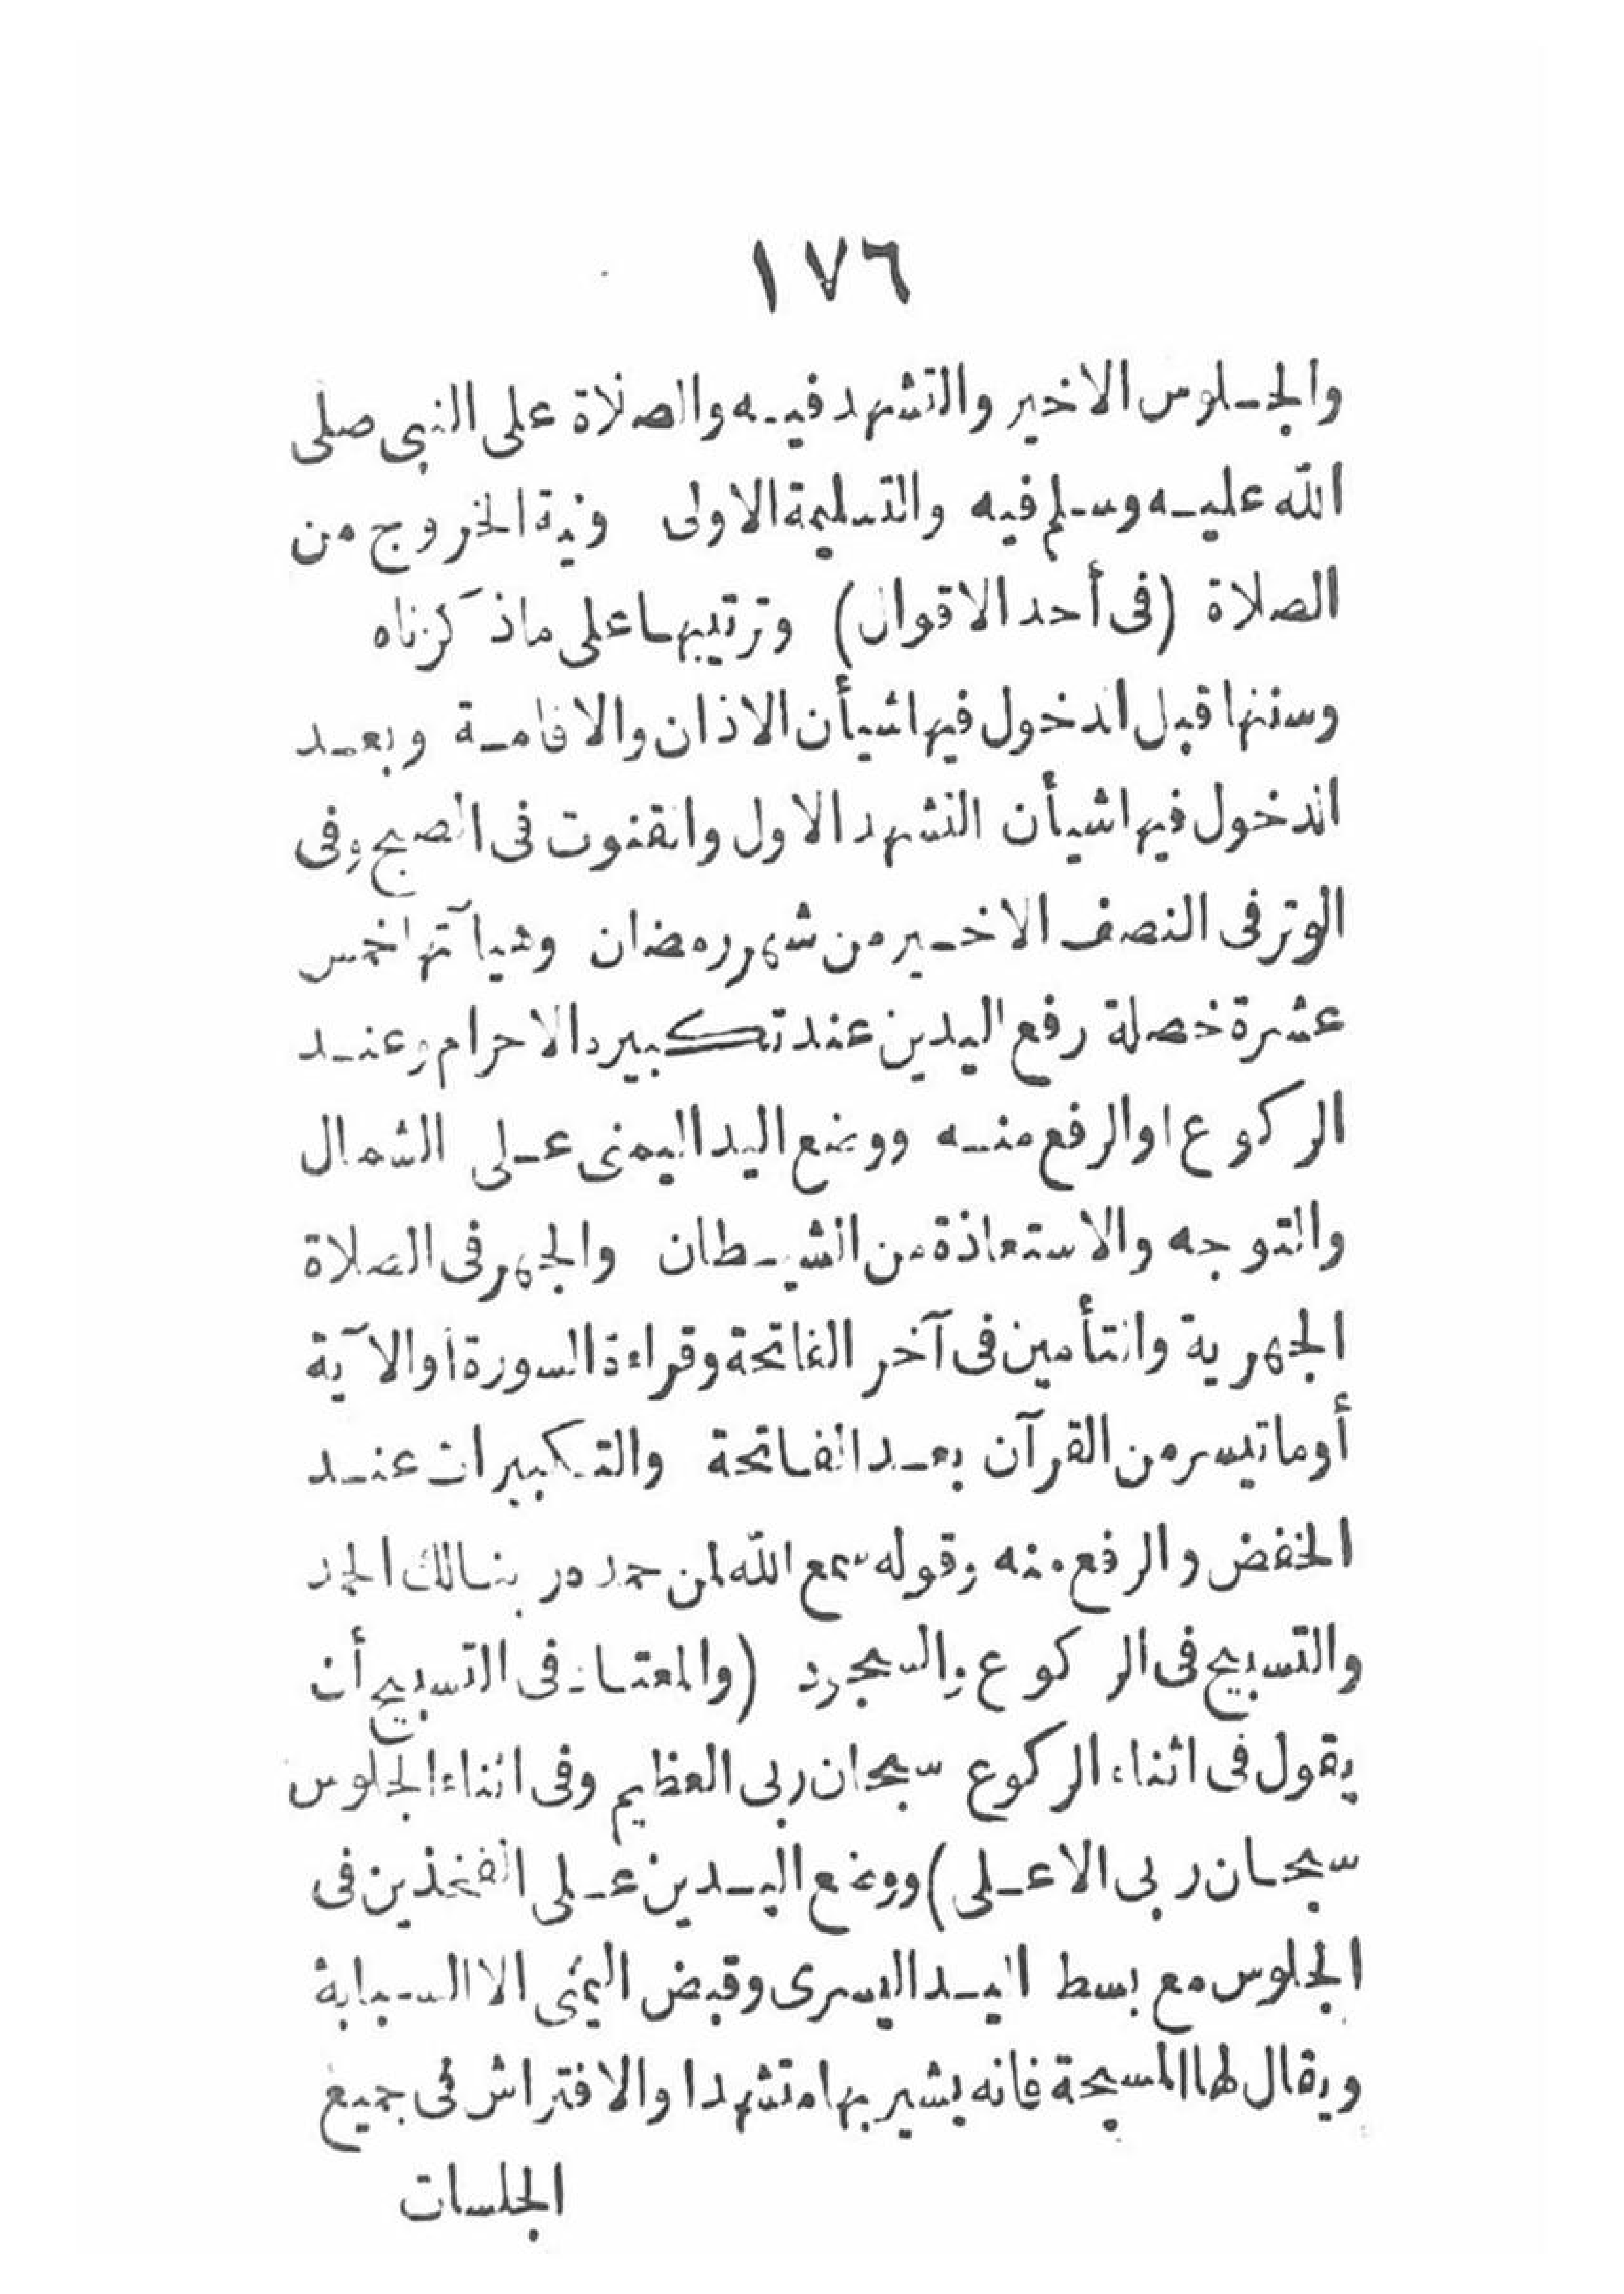 ١٧٦
والجلوس الاخير والتشهد فيه والصلاة على النبي صلى
الله عليه وسلم فيه والتسليمة الاولى ونية الخروج من
الصلاة (فى أحد الاقوال) وترتيبها على ماذكرناه
وسننها قبل الدخول فيها شيأن الاذان والاقامة وبعد
الدخول فيها شيأن التشهد الاول والقنوت فى الصبح وفى
الوتر فى النصف الاخير من شهر رمضان وهيآتها خمس
عشرة خصلة رفع اليدين عند تكبيرة الاحرام وعند
الركوع او الرفع منه ووضع اليد اليمنى على الشمال
والتوجه والاستعاذة من الشيطان والجهر فى الصلاة
الجهرية والتأمين فى آخر الفاتحة وقراءة السورة أو الآية
أو ما تيسر من القرآن بعد الفاتحة والتكبيرات عند
الخفض والرفع منه وقوله سمع الله لمن حمده ربنا لك الحمد
والتسبيح فى الركوع والسجود (والمعتاد فى التسبيح أن
يقول فى اثناء الركوع سبحان ربى العظيم وفى اثناء الجلوس
سبحان ربى الاعلى) ووضع اليدين على الفخذين فى
الجلوس مع بسط اليد اليسرى وقبض اليمنى الا السبابة
ويقال لها المسبحة فانه يشير بها متشهدا والافتراش فى جميع
الجلسات